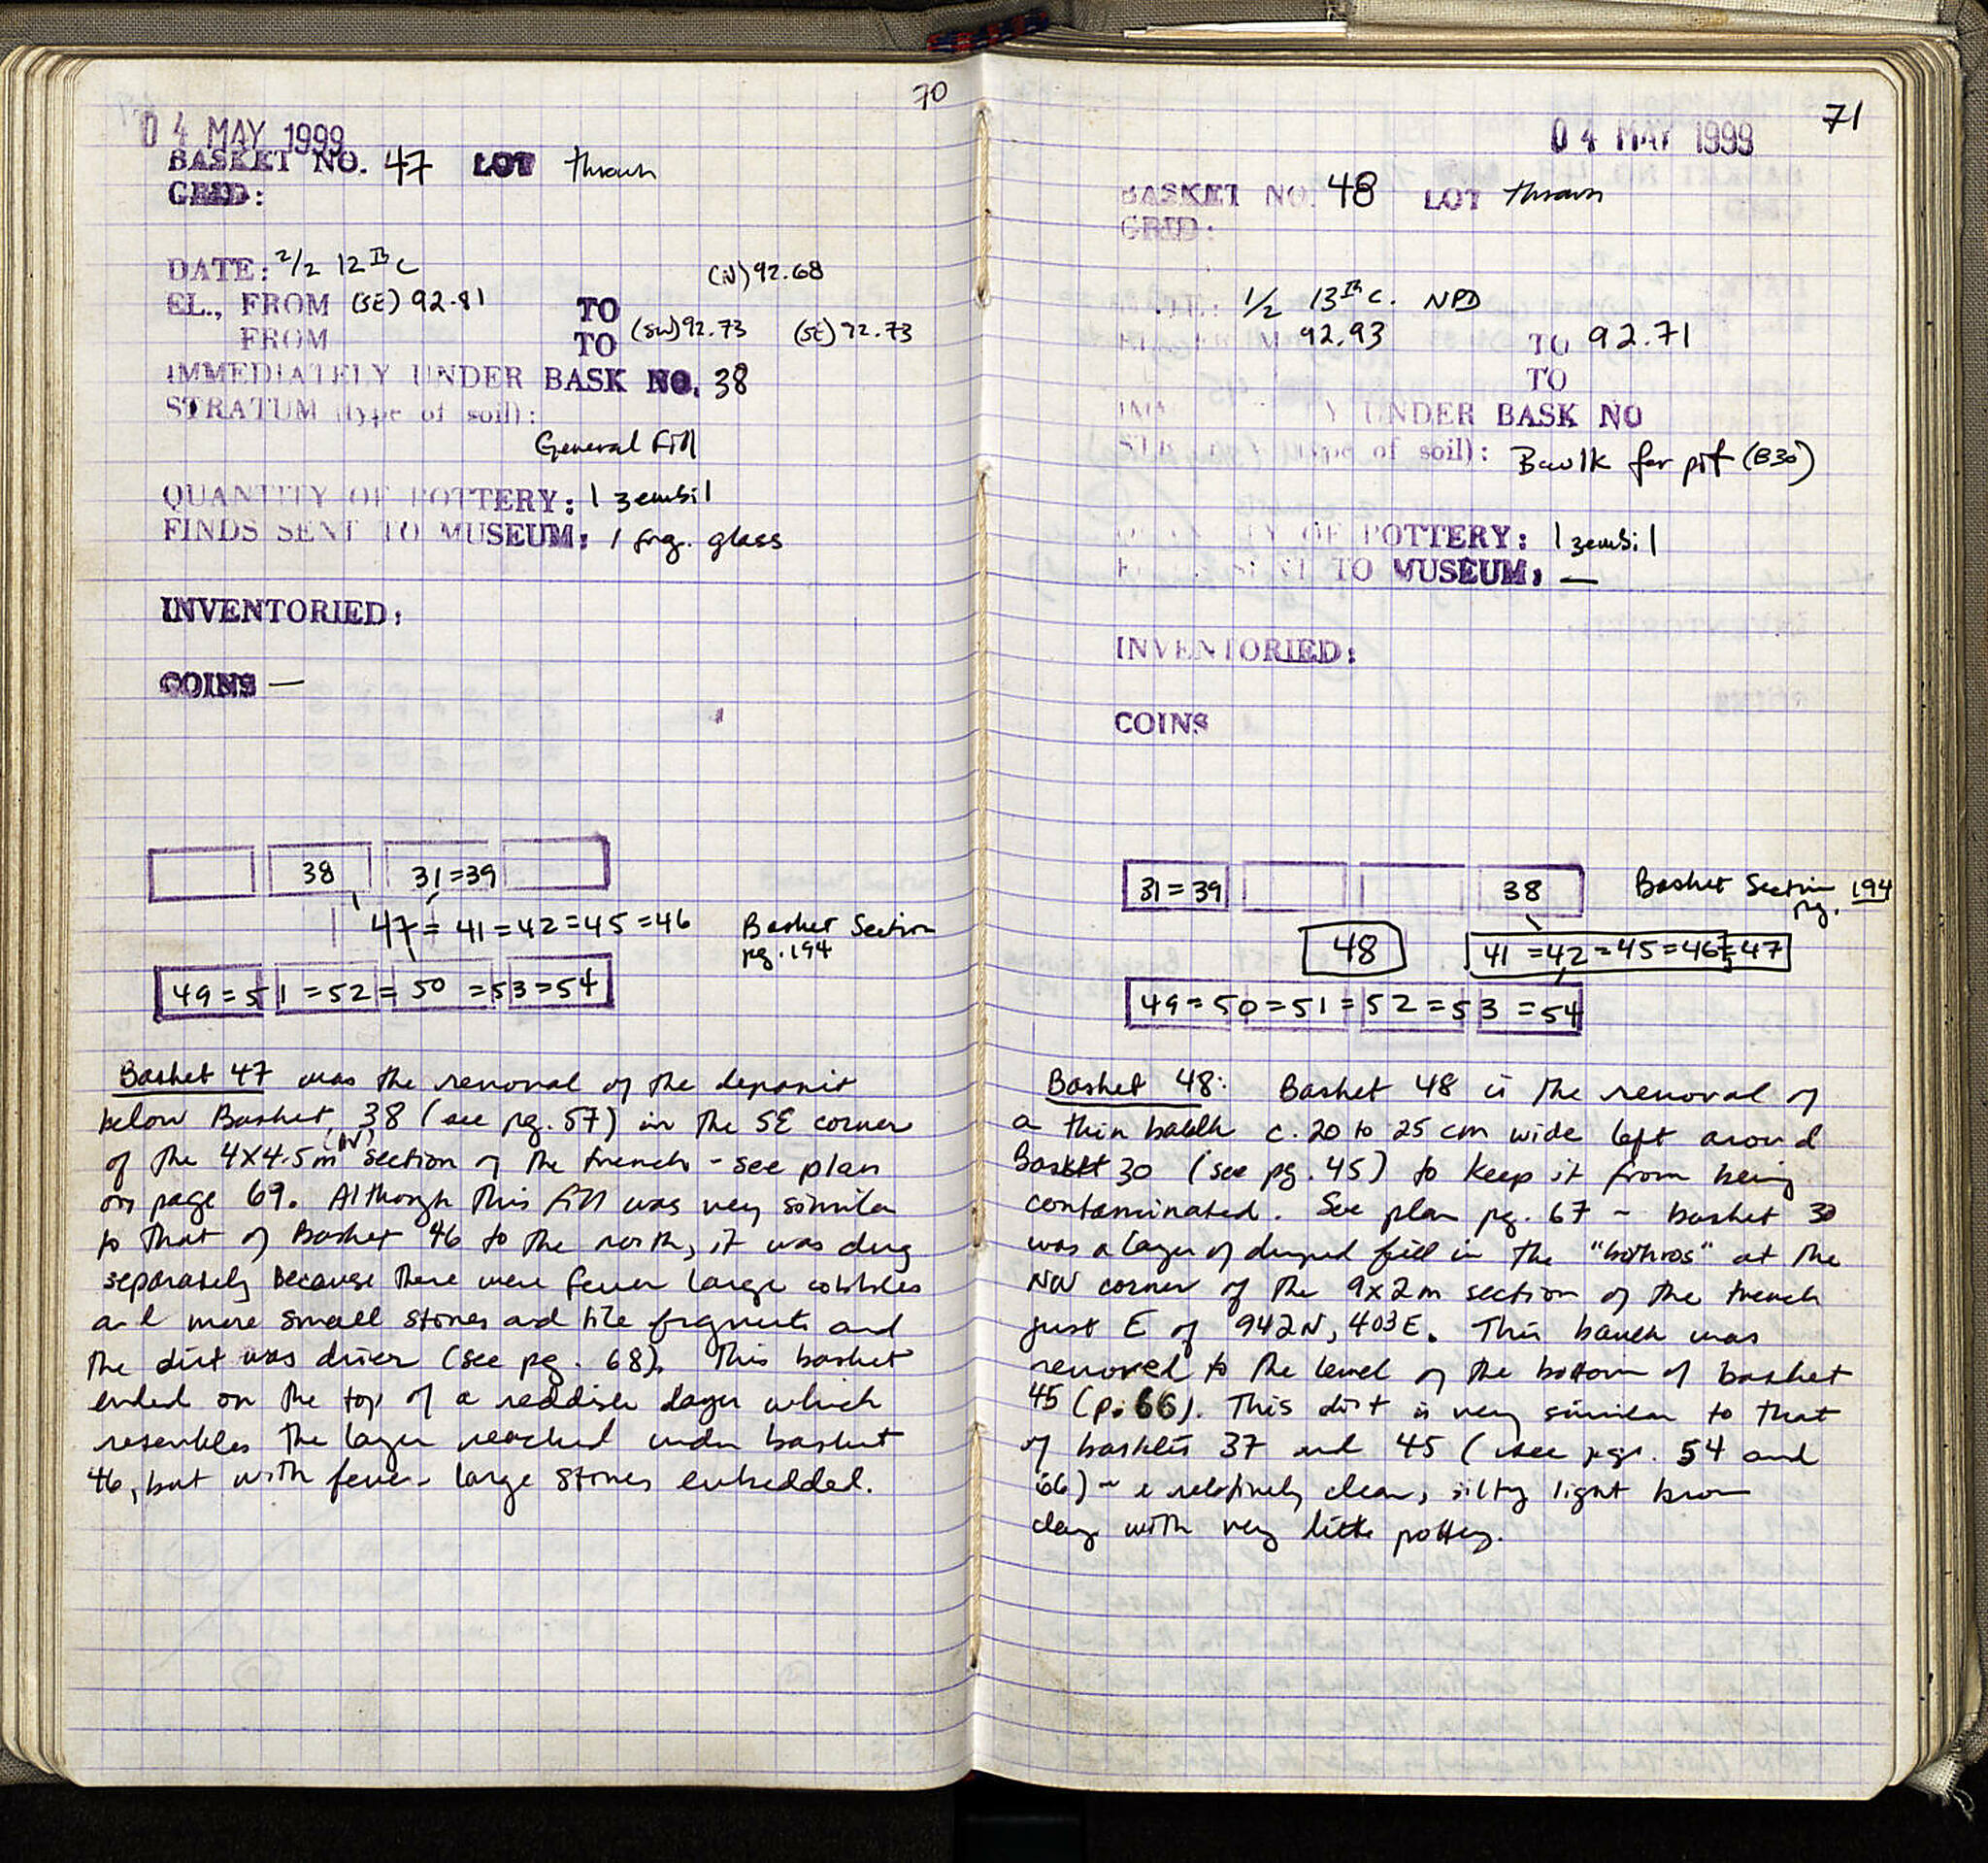 70
04 MAY 1999
BASKET NO. 47 LOT thrown
GRID:
DATE: 2/2 12th C
(N) 92.68
EL., FROM (SE) 92.81 TO
FROM TO (SW) 92.73 (SE) 92.73
IMMEDIATELY UNDER BASK NO. 38
STRATUM (type of soil):
General Fill
QUANTITY OF POTTERY: 1 zembil
FINDS SENT TO MUSEUM: 1 frg. glass
INVENTORIED:
COINS —
38 31=39
47 = 41 = 42 = 45 = 46 Basket Section
pg. 194
49 = 51 = 52 = 50 = 53 = 54
Basket 47 was the removal of the deposit
below Basket 38 (see pg. 57) in the SE corner
of the 4x4.5m (N) section of the trench - see plan
on page 69. Although this fill was very similar
to that of Basket 46 to the north, it was dug
separately because there were fewer large cobbles
and more small stones and tile fragments and
the dirt was drier (see pg. 68). This basket
ended on the top of a reddish layer which
resembles the layer reached under basket
46, but with fewer large stones embedded.
71
04 MAY 1999
BASKET NO. 48 LOT thrown
GRID:
1/2 13th C. NPD
M 92.93 TO 92.71
TO
Y UNDER BASK NO
(type of soil): Baulk for pit (B30)
TY OF POTTERY: 1 zembil
TO MUSEUM: —
INVENTORIED:
COINS
31 = 39 38 Basket Section 194
pg.
48 41 = 42 = 45 = 46 = 47
49 = 50 = 51 = 52 = 53 = 54
Basket 48: Basket 48 is the removal of
a thin baulk c. 20 to 25 cm wide left around
Baskt 30 (see pg. 45) to keep it from being
contaminated. See plan pg. 67 - basket 30
was a layer of dumped fill in the "bothros" at the
NW corner of the 9x2m section of the trench
just E of 942N, 403E. This baulk was
removed to the level of the bottom of basket
45 (p. 66). This dirt is very similar to that
of baskets 37 and 45 (see pgs. 54 and
66) - a relatively clean, silty light brown
clay with very little pottery.